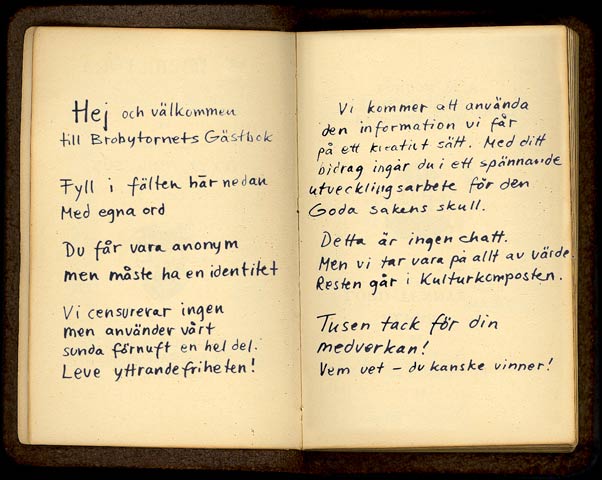 Hej och välkommen
till Brobytornets Gästbok
Fyll i fälten här nedan
Med egna ord
Du får vara anonym
men måste ha en identitet
Vi censurerar ingen
men använder vårt
sunda förnuft en hel del.
Leve yttrandefriheten!
Vi kommer att använda
den information vi får
på ett kreativt sätt. Med ditt
bidrag ingår du i ett spännande
utvecklingsarbete för den
Goda sakens skull.
Detta är ingen chatt.
Men vi tar vara på allt av värde.
Resten går i Kulturkomposten.
Tusen tack för din
medverkan!
Vem vet - du kanske vinner!